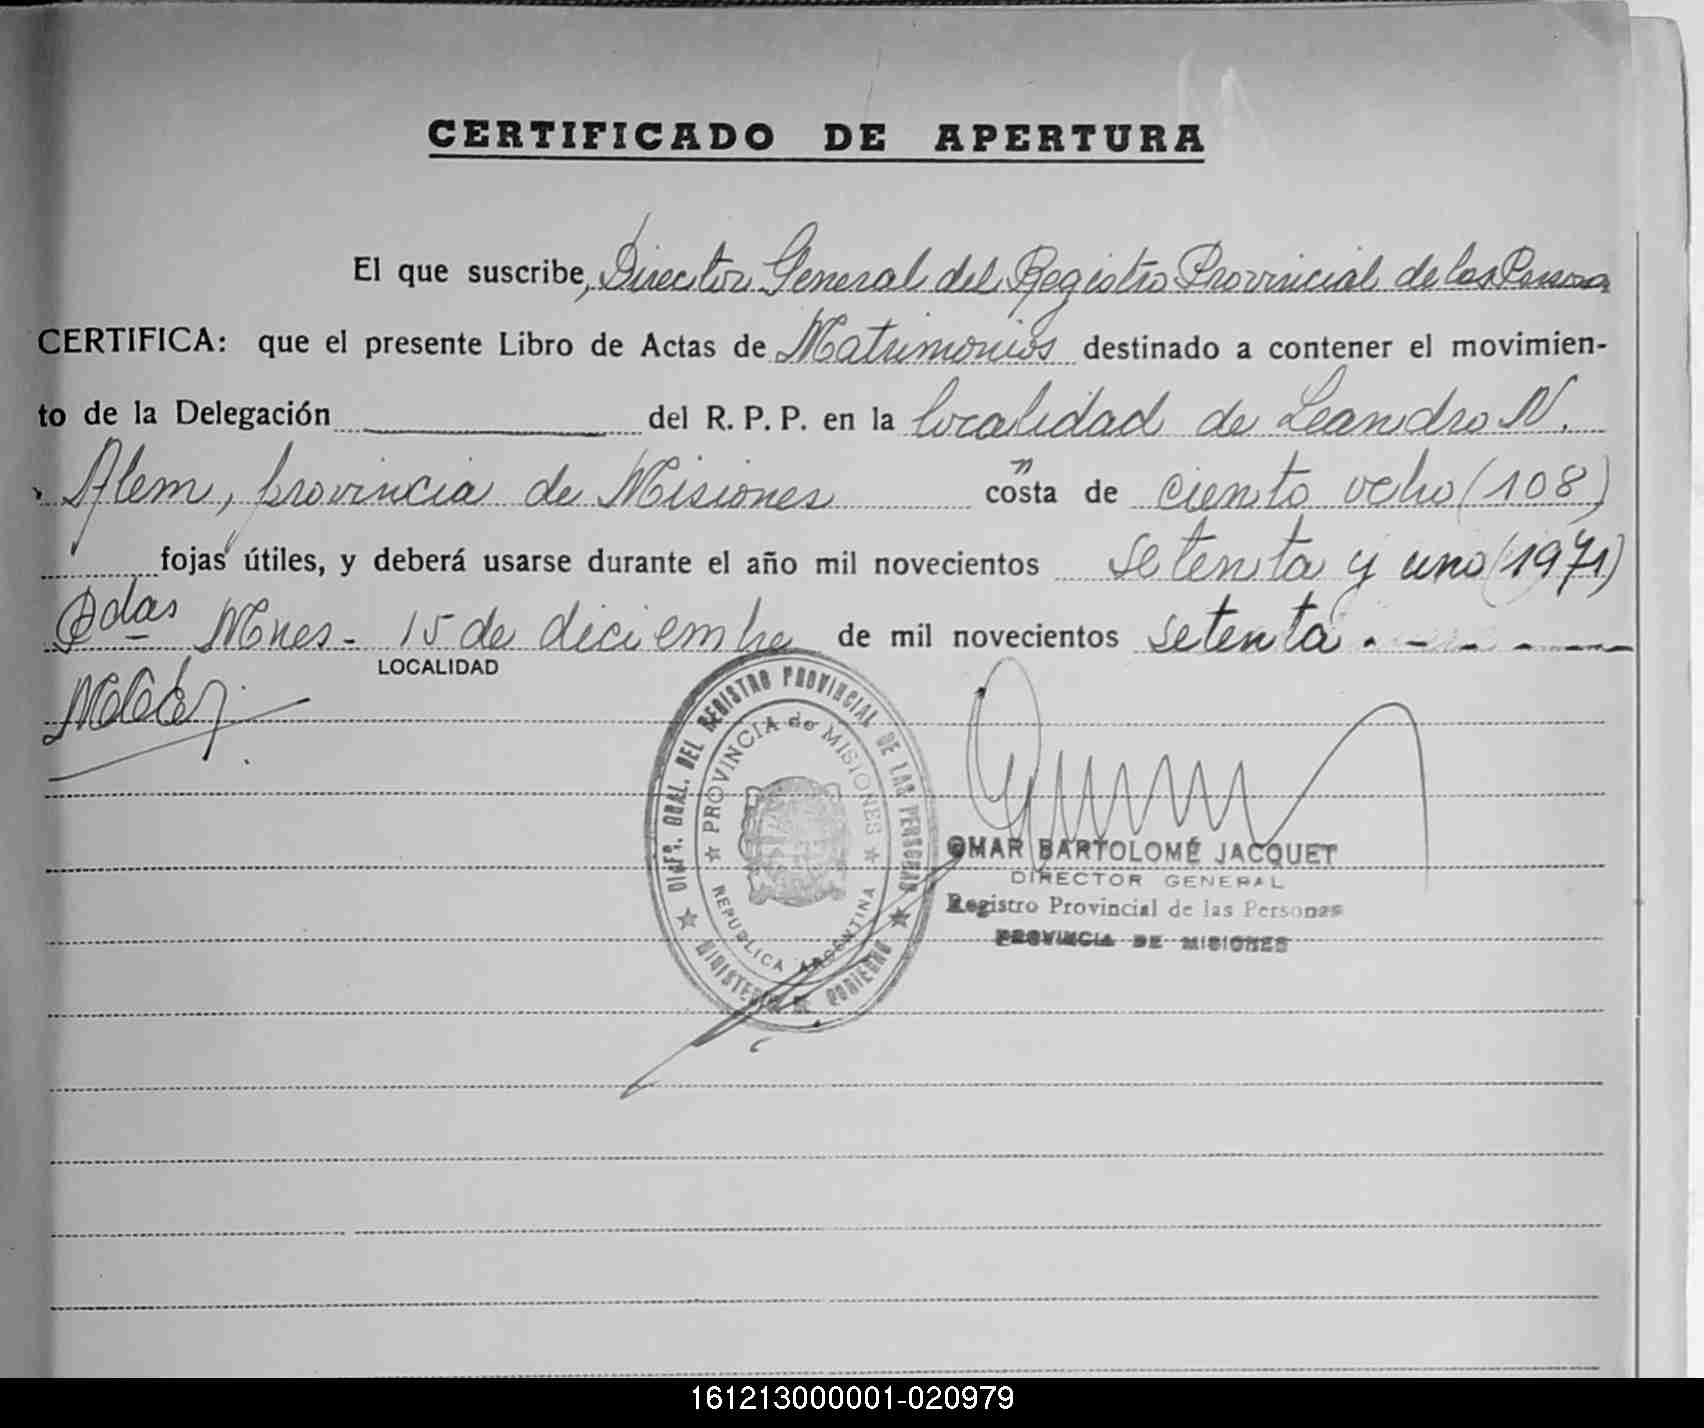 CERTIFICADO DE APERTURA
El que suscribe, Director General del Registro Provincial de las Personas
CERTIFICA: que el presente Libro de Actas de Matrimonios destinado a contener el movimien-
to de la Delegación del R. P. P. en la localidad de Leandro N.
Alem, provincia de Misiones consta de ciento ocho (108)
fojas útiles, y deberá usarse durante el año mil novecientos setenta y uno (1971)
Pdas Mnes - 15 de diciembre de mil novecientos setenta . - - - -
LOCALIDAD
DIREC. GRAL. DEL REGISTRO PROVINCIAL DE LAS PERSONAS
PROVINCIA de MISIONES
REPUBLICA ARGENTINA
MINISTERIO DE GOBIERNO
OMAR BARTOLOMÉ JACQUET
DIRECTOR GENERAL
Registro Provincial de las Personas
PROVINCIA DE MISIONES
161213000001-020979